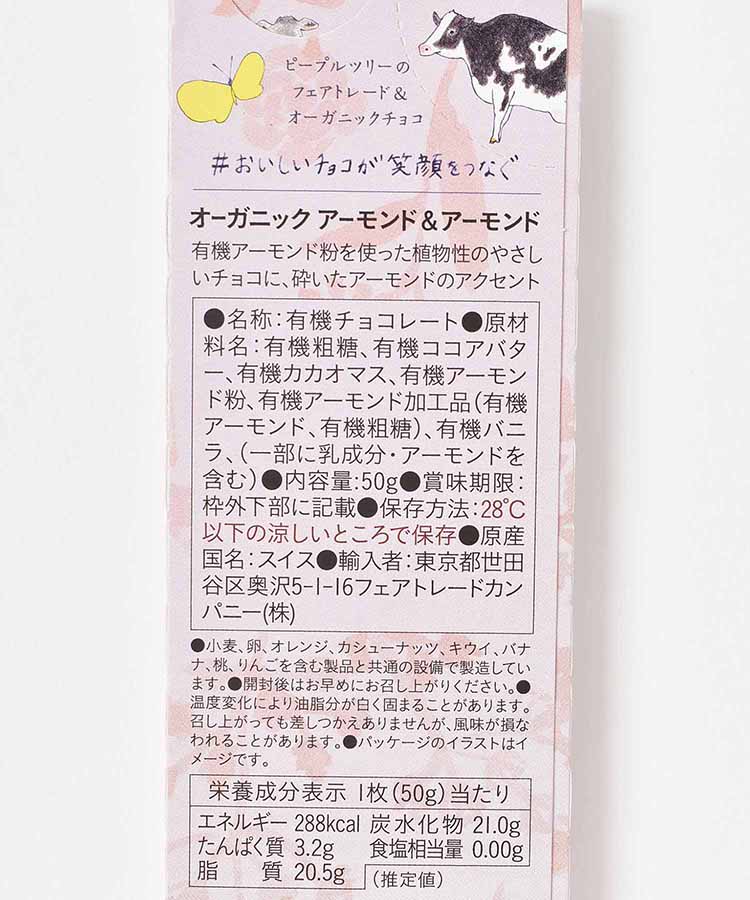 ピープルツリーの
フェアトレード&
オーガニックチョコ
#おいしいチョコが笑顔をつなぐ
オーガニック アーモンド&アーモンド
有機アーモンド粉を使った植物性のやさし
いチョコに、砕いたアーモンドのアクセント
●名称:有機チョコレート●原材
料名:有機粗糖、有機ココアバタ
ー、有機カカオマス、有機アーモン
ド粉、有機アーモンド加工品(有機
アーモンド、有機粗糖)、有機バニ
ラ、(一部に乳成分・アーモンドを
含む)●内容量:50g●賞味期限:
枠外下部に記載●保存方法:28℃
以下の涼しいところで保存●原産
国名:スイス●輸入者:東京都世田
谷区奥沢5-1-16フェアトレードカン
パニー(株)
●小麦、卵、オレンジ、カシューナッツ、キウイ、バナ
ナ、桃、りんごを含む製品と共通の設備で製造してい
ます。●開封後はお早めにお召し上がりください。●
温度変化により油脂分が白く固まることがあります。
召し上がっても差しつかえありませんが、風味が損な
われることがあります。●パッケージのイラストはイ
メージです。
栄養成分表示 1枚(50g)当たり
エネルギー 288kcal 炭水化物 21.0g
たんぱく質 3.2g 食塩相当量 0.00g
脂 質 20.5g (推定値)